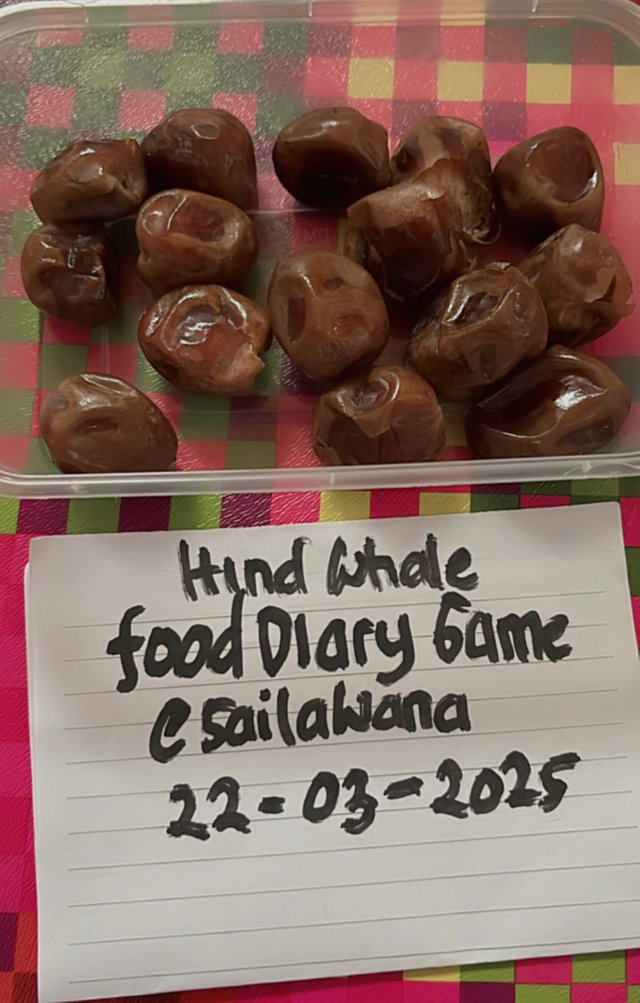 Hind Whale
food Diary Game
@sailawana
22-03-2025